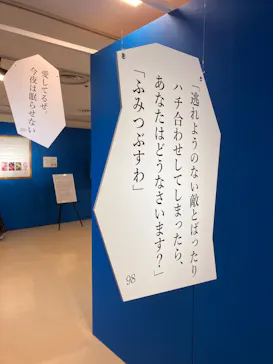 「逃れようのない敵とばったり
ハチ合わせしてしまったら、
あなたはどうなさいます?」
「ふみつぶすわ」
98
愛してるぜ。
今夜は眠らせない